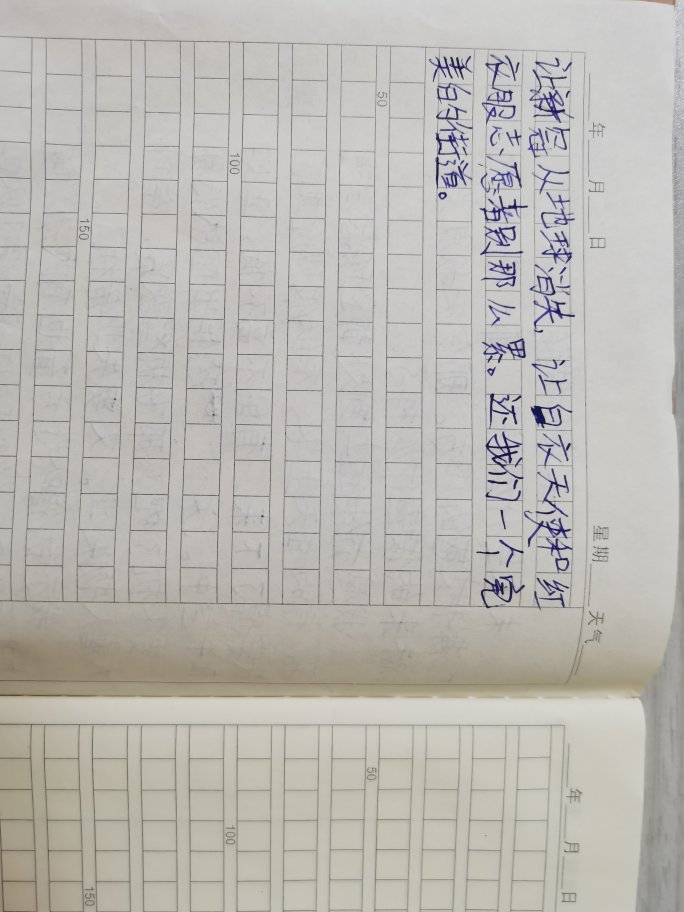 年 月 日 星期 天气
让新冠从地球消失,让白衣天使和红
衣服志愿者别那么累。还我们一个完
美的街道。
50
100
150
年 月 日
50
100
150